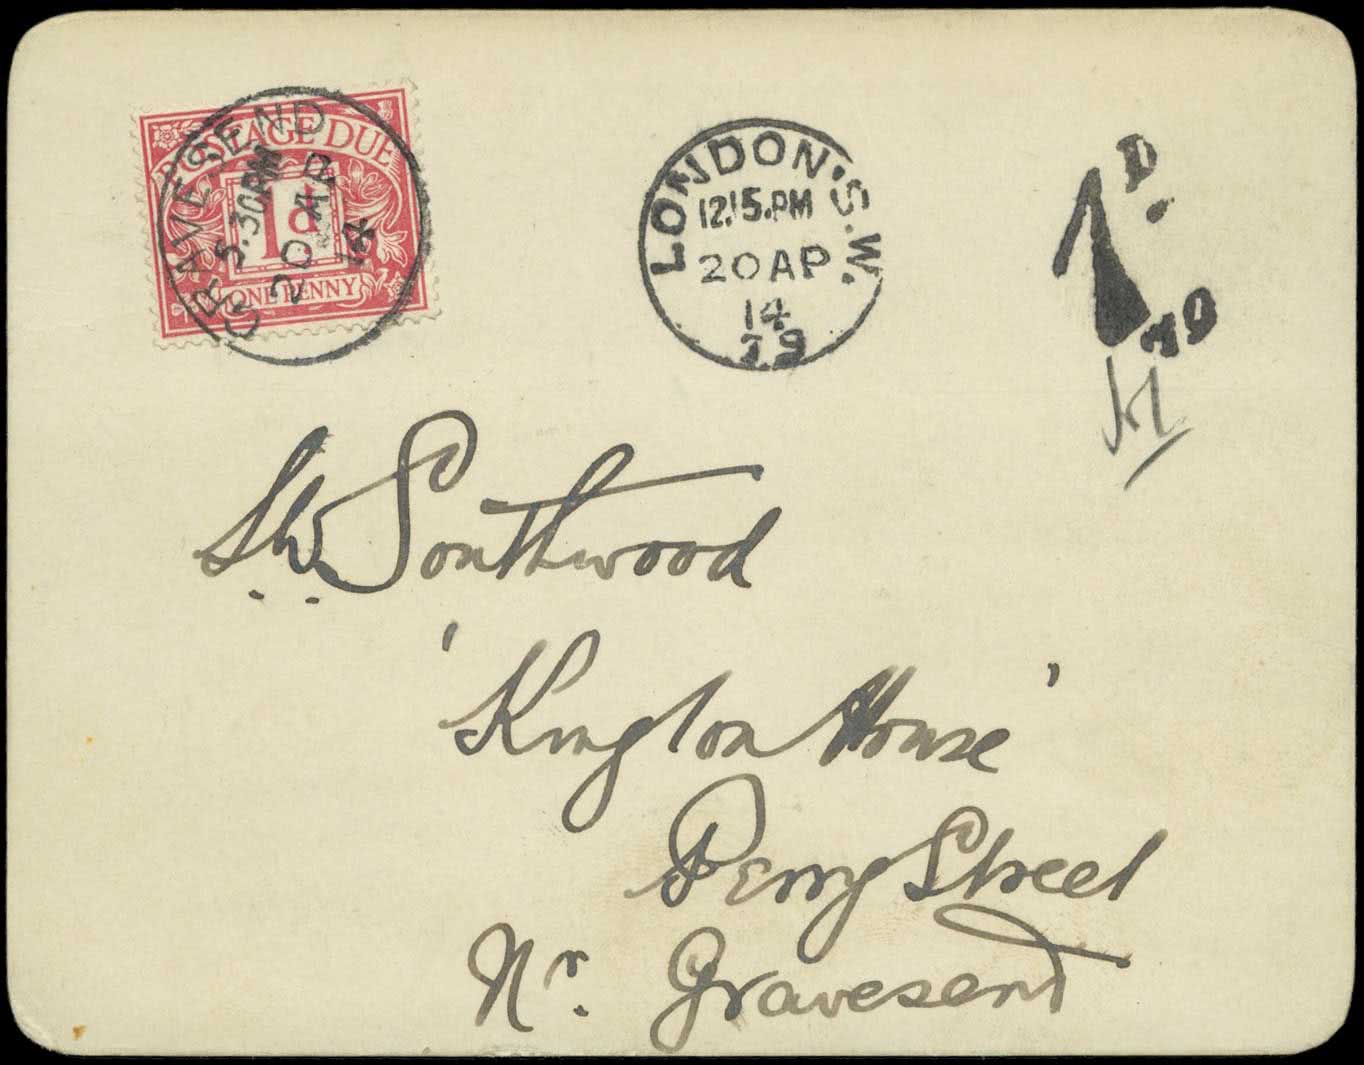 POSTAGE DUE
1d
ONE PENNY
GRAVESEND
5.30PM
20 AP
14
LONDON.S.W.
12.15.PM
20 AP
14
79
1D.
79
Southwood
'Kington House'
Perry Street
Nr. Gravesend